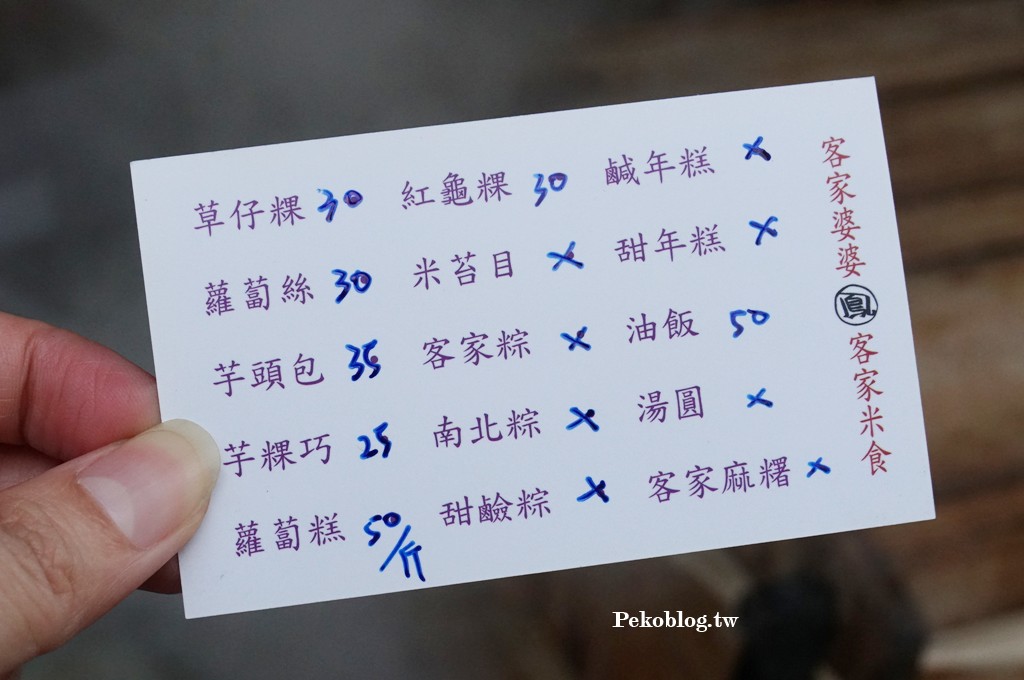 草仔粿 30 紅龜粿 30 鹹年糕 ×
蘿蔔絲 30 米苔目 × 甜年糕 ×
芋頭包 35 客家粽 × 油飯 50
芋粿巧 25 南北粽 × 湯圓 ×
蘿蔔糕 50/斤 甜鹼粽 × 客家麻糬 ×
客家婆婆 鳳 客家米食
Pekoblog.tw